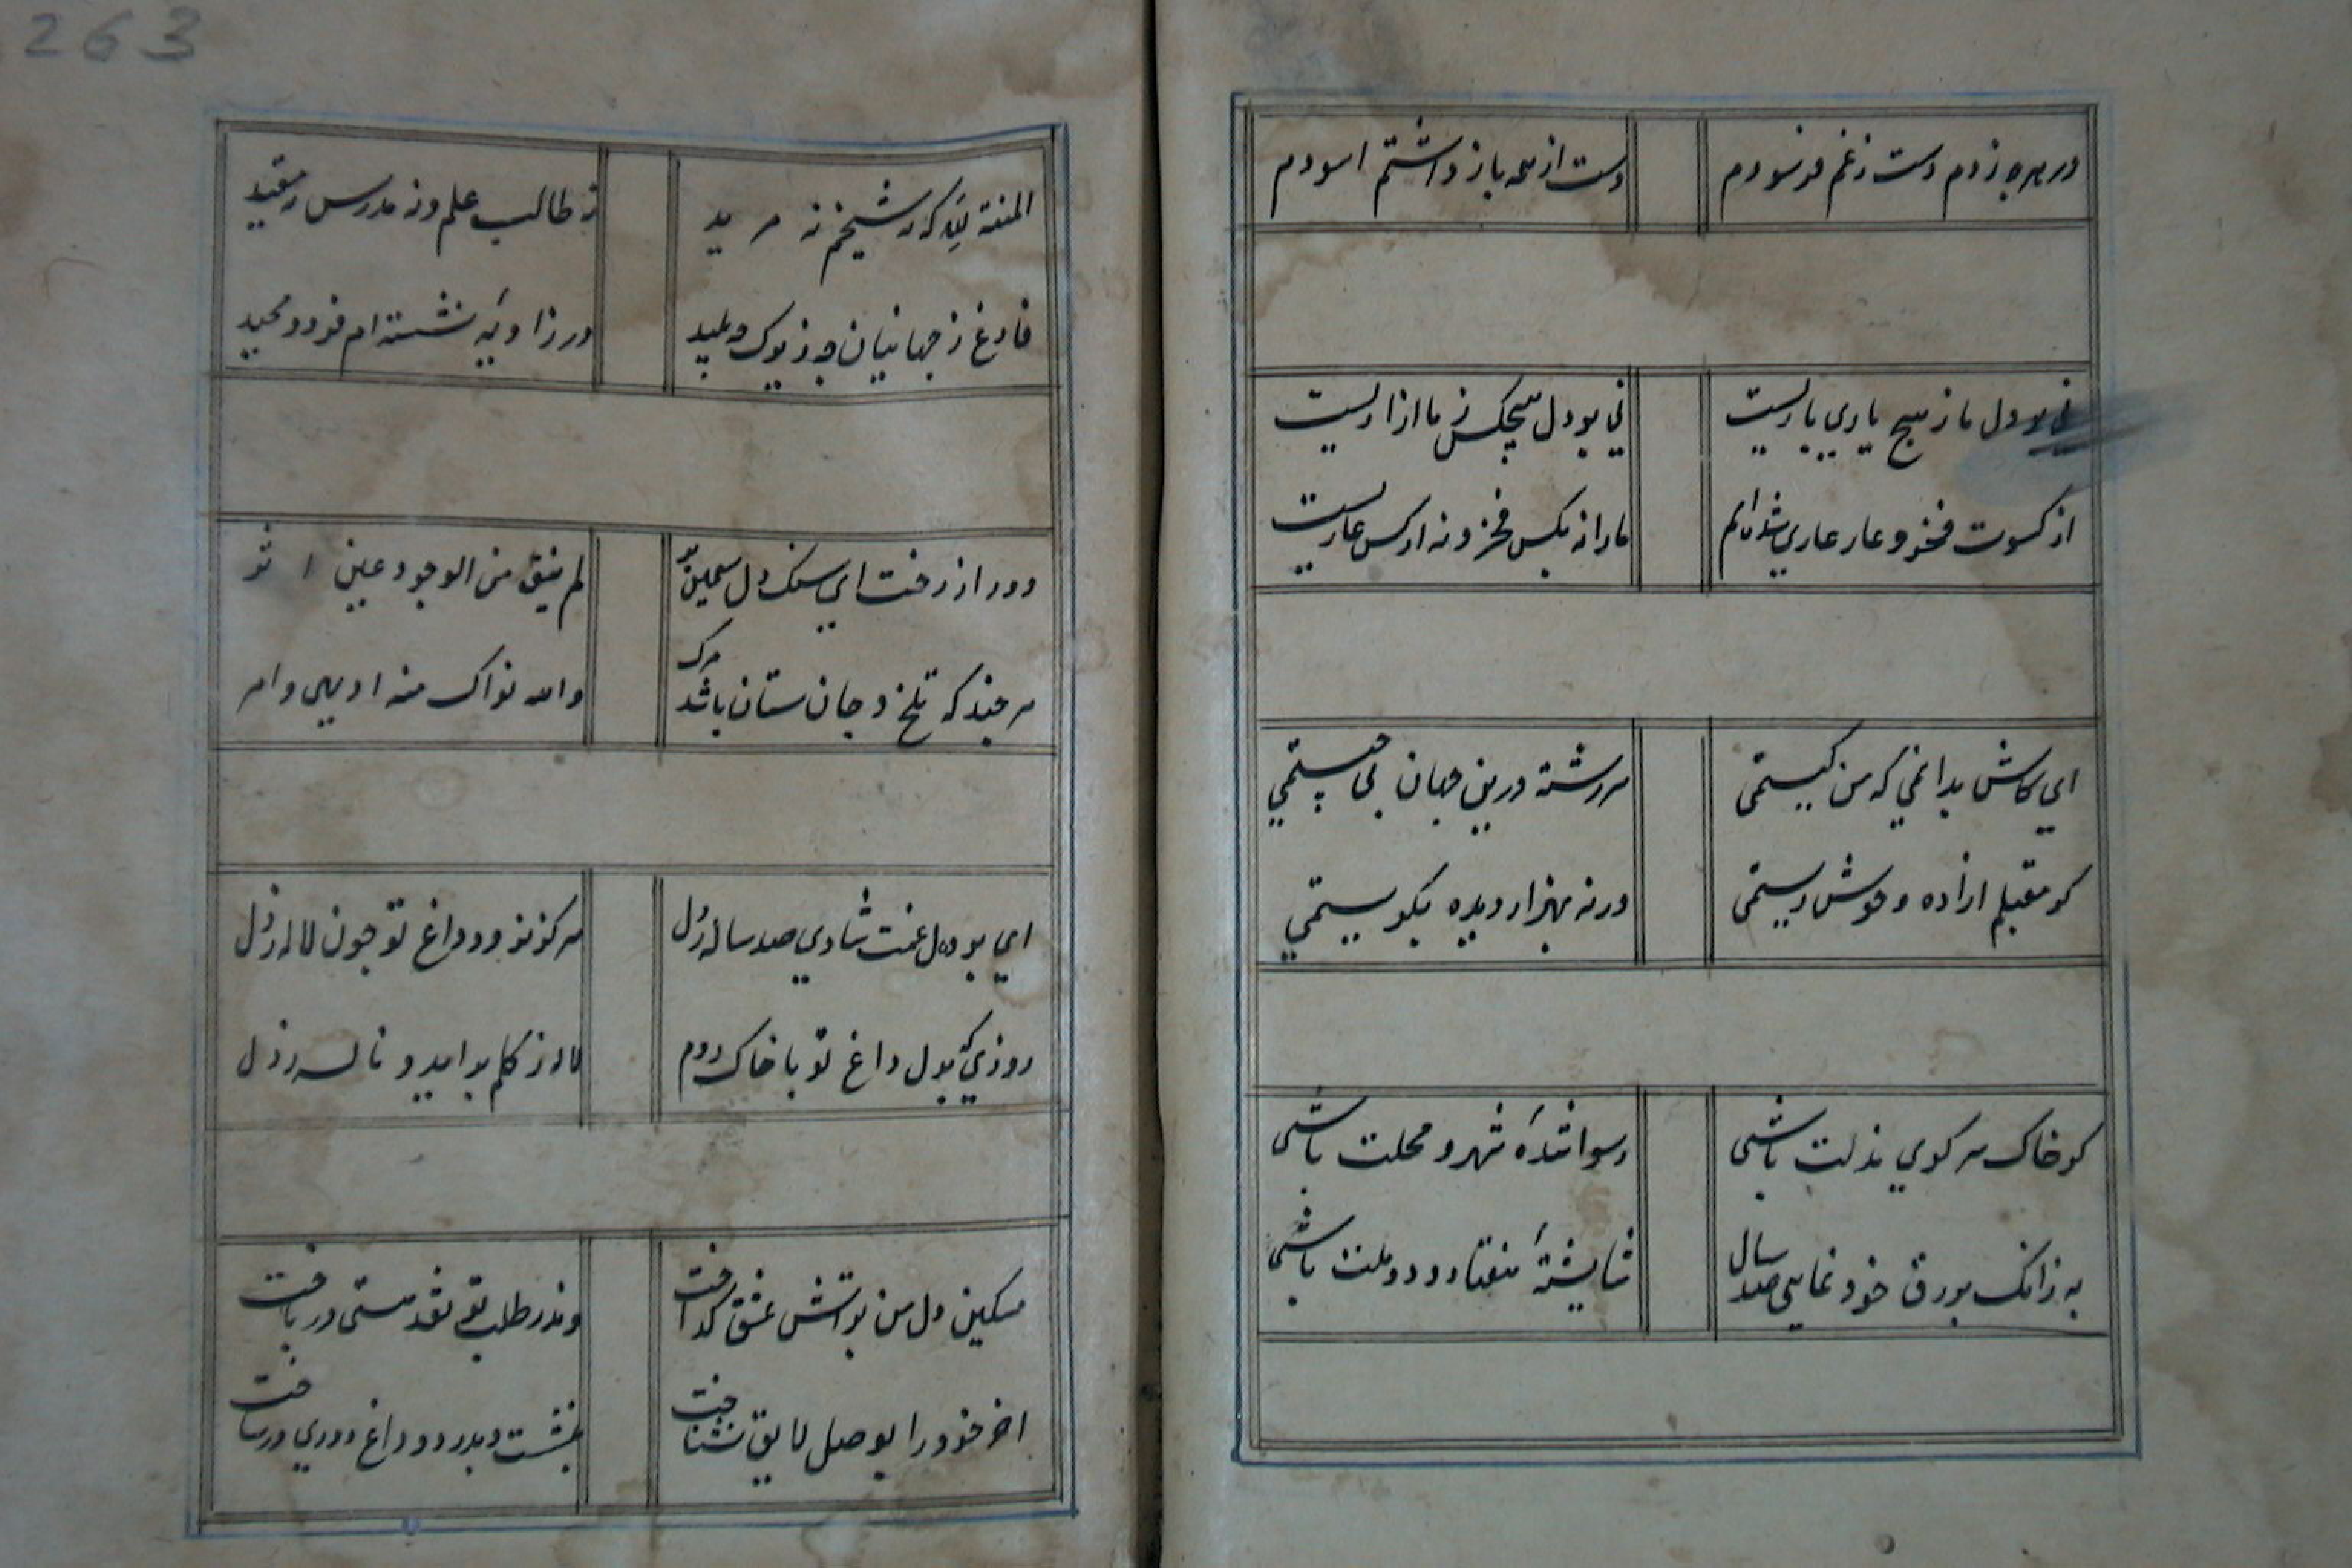 در هرچه زدم دست زغم فرسودم
دست از همه باز داشتم اسودم
نی بر دل ما ز هیچ یاری باریست
نی بر دل هیچکس ز ما ازاریست
از کسوت فخر و عار عاری شده ایم
مارا نه بکس فخر و نه از کس عاریست
ای کاش بدانمی که من کیستمی
سرگشته درین جهان پی چیستمی
گر مقبلم ازاده و خوش زیستمی
ورنه بهزار دیده بگریستمی
گر خاک سر کوی مذلت باشی
رسوا شدهٔ شهر و محلت باشی
به زانک بزرق خود نمایی صد سال
شایستهٔ هفتاد و دو ملت باشی
263
المنة لله که نه شیخم نه مرید
نه طالب علم و نه مدرس نه مفید
فارغ ز جهانیان چه ز پاک و پلید
در زاویهٔ نشسته ام فرد و وحید
دور از رخت ای سنک دل سیمین بر
لم یبق من الوجود عین و اثر
هر چند که تلخ و جان ستان باشد مرک
والله نواک منه ادهی وامر
ای بر دل غمت شادی صد ساله ز دل
هرگز نرود داغ تو چون لاله ز دل
روزی که بدل داغ تو با خاک روم
لاله ز گلم براید و ناله ز دل
مسکین دل من بر اتش عشق گداخت
وندر طلب تو نقد هستی در باخت
اخر خود را بوصل لایق نشناخت
بنشست و بدرد و داغ دوری در ساخت